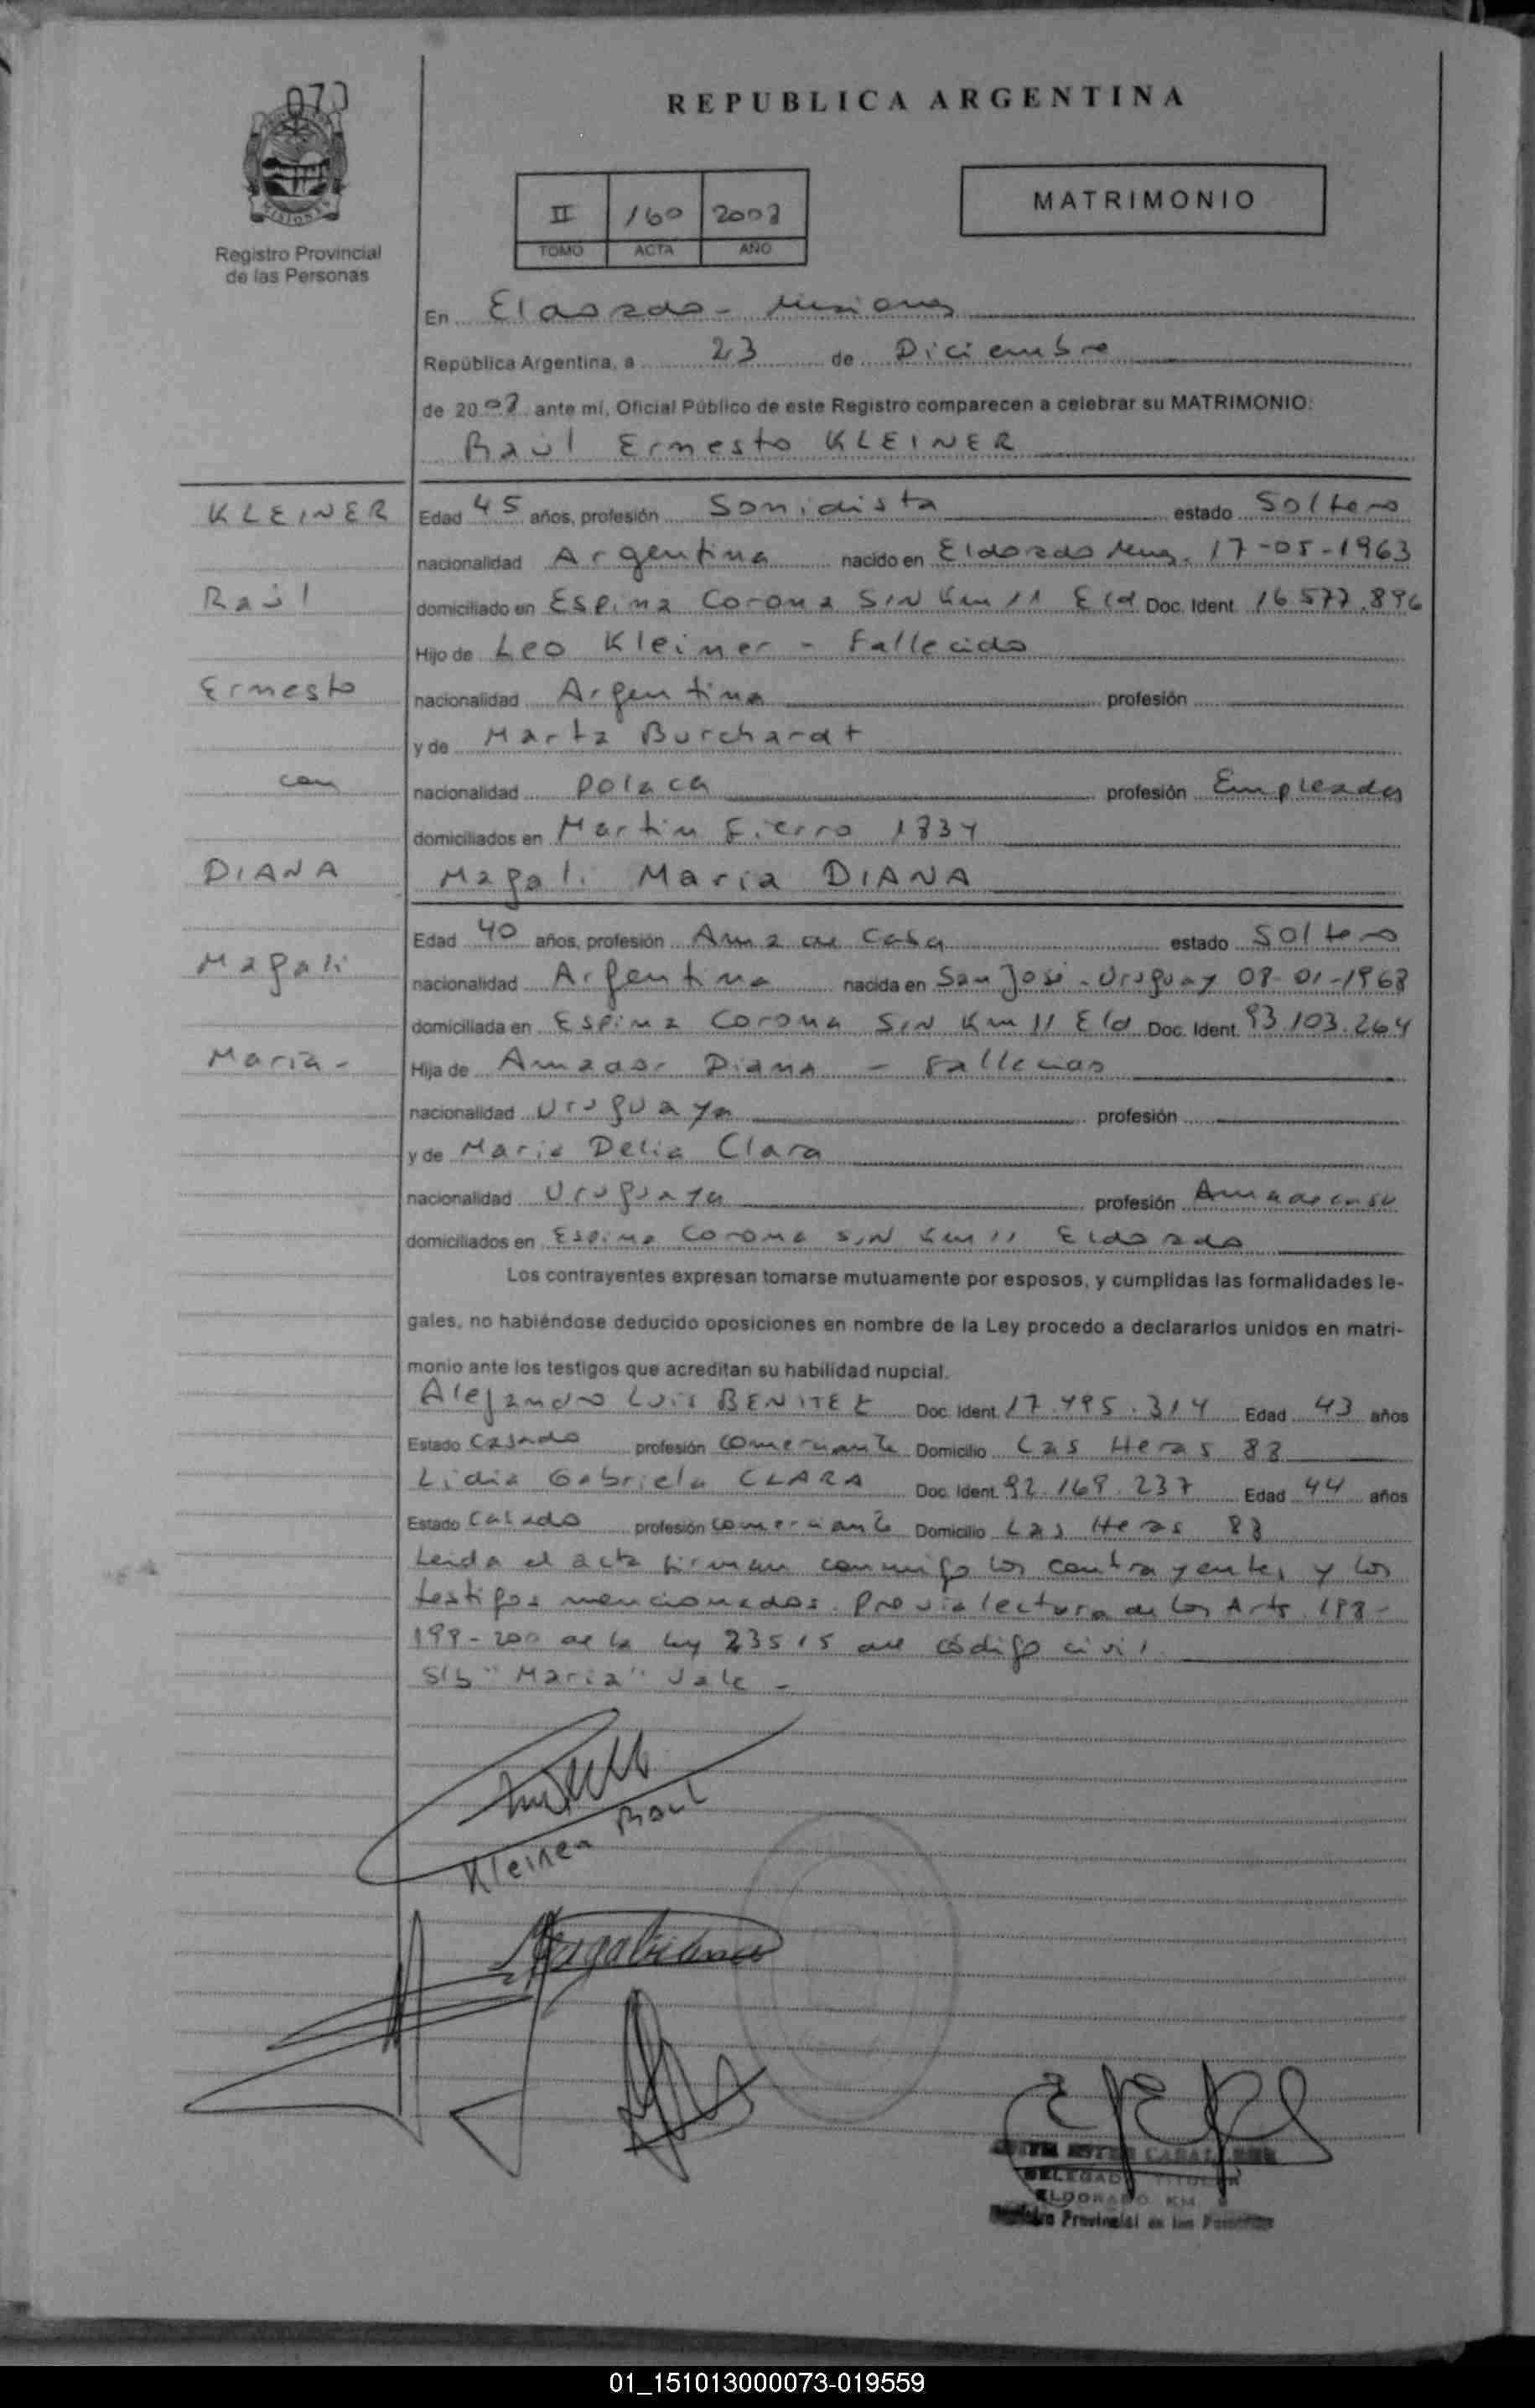 073
REPUBLICA ARGENTINA
II 160 2008
TOMO ACTA AÑO
MATRIMONIO
MISIONES
Registro Provincial
de las Personas
En Eldorado - Misiones
República Argentina, a 23 de Diciembre
de 2008 ante mí, Oficial Público de este Registro comparecen a celebrar su MATRIMONIO:
Raúl Ernesto KLEINER
KLEINER
Edad 45 años, profesión Sonidista estado Soltero
nacionalidad Argentina nacido en Eldorado Mnes. 17-05-1963
Raúl
domiciliado en Espina Corona S/N Km 11 Eld Doc. Ident. 16.577.896
Hijo de Leo Kleiner - Fallecido
Ernesto
nacionalidad Argentina profesión
y de Marta Burchardt
con
nacionalidad Polaca profesión Empleada
domiciliados en Martin Fierro 1834
DIANA
Magali Maria DIANA
Edad 40 años, profesión Ama de Casa estado Soltero
Magali
nacionalidad Argentina nacida en San José - Uruguay 08-01-1968
domiciliada en Espina Corona S/N Km 11 Eld Doc. Ident. 93.103.264
Maria -
Hija de Amador Diana - Fallecido
nacionalidad Uruguaya profesión
y de Maria Delia Clara
nacionalidad Uruguaya profesión Ama de casa
domiciliados en Espina Corona S/N Km 11 Eldorado
Los contrayentes expresan tomarse mutuamente por esposos, y cumplidas las formalidades le-
gales, no habiéndose deducido oposiciones en nombre de la Ley procedo a declararlos unidos en matri-
monio ante los testigos que acreditan su habilidad nupcial.
Alejandro Luis BENITEZ Doc. Ident. 17.495.314 Edad 43 años
Estado Casado profesión comerciante Domicilio Las Heras 83
Lidia Gabriela CLARA Doc. Ident. 92.169.237 Edad 44 años
Estado Casado profesión comerciante Domicilio Las Heras 83
Leida el acta firman conmigo los contrayentes y los
testigos mencionados. Previa lectura de los Arts. 198-
199-200 de la ley 23515 del código civil.
S/b "Maria" Vale -
Kleiner Raul
CABALLERO
DELEGADA TITULAR
ELDORADO KM
Registro Provincial de las Personas
01_151013000073-019559